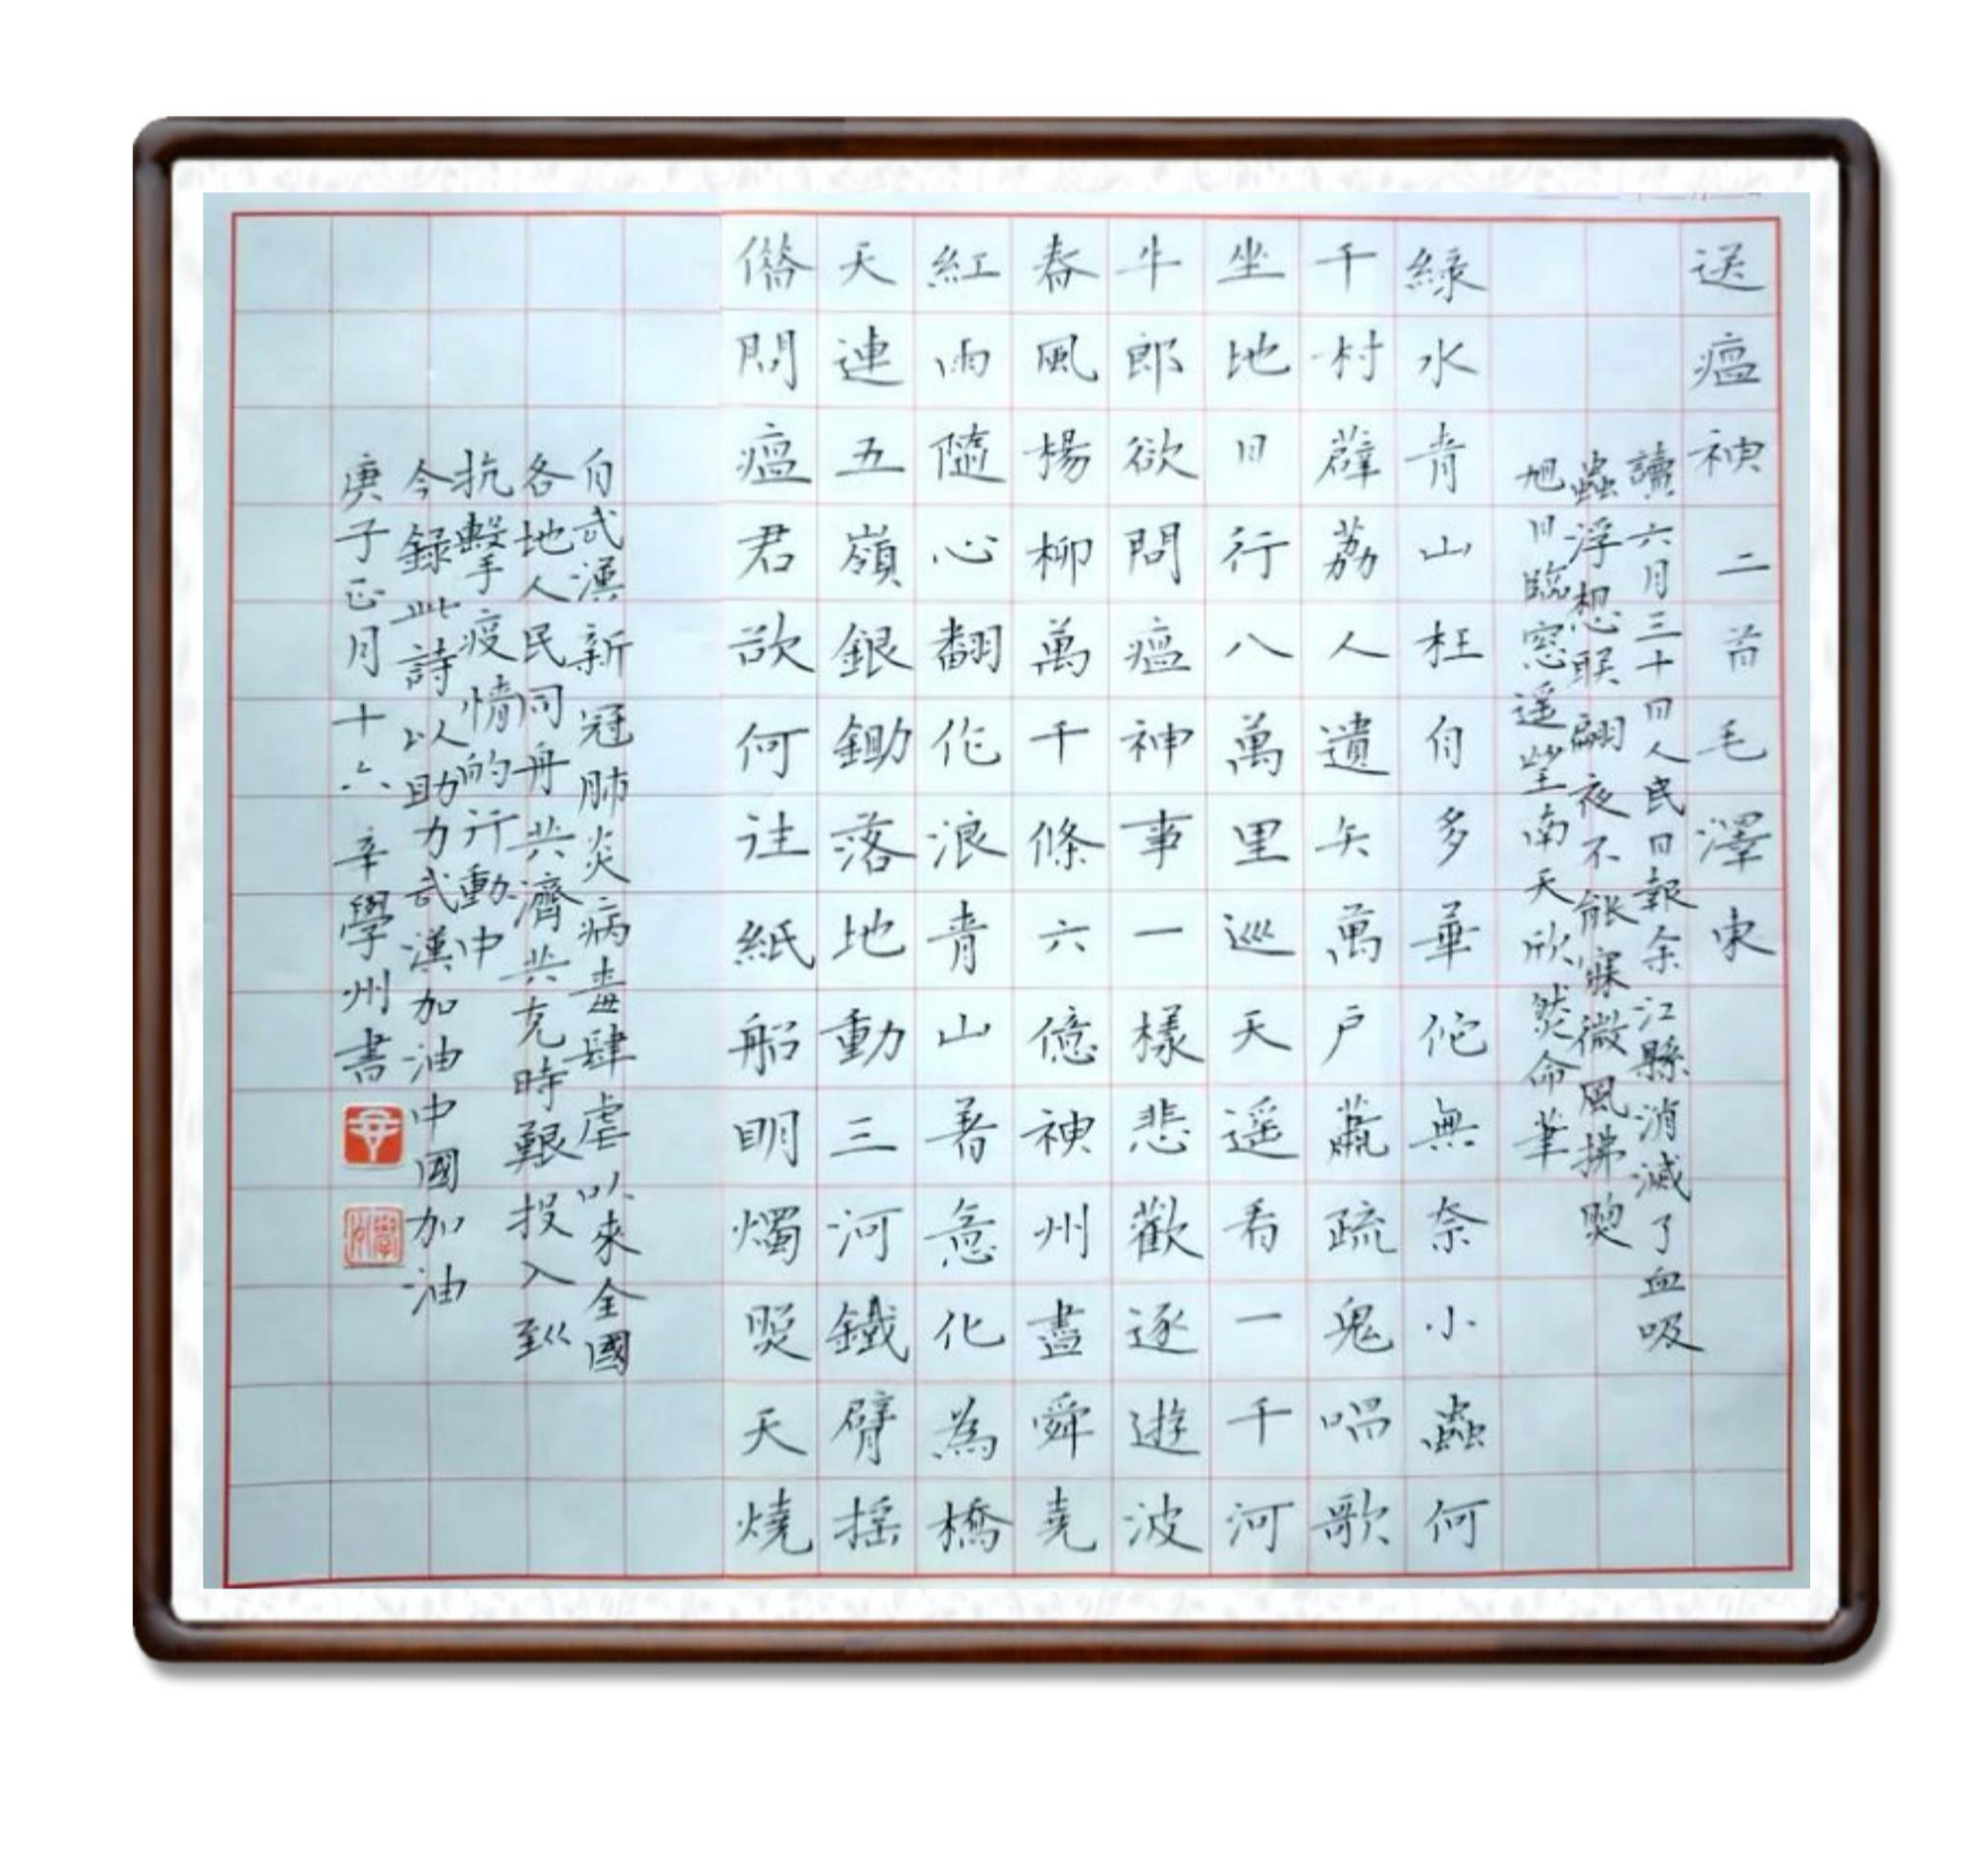 送瘟神二首毛澤東
讀六月三十日人民日報余江縣消滅了血吸
蟲浮想联翩夜不能寐微風拂煦
旭日臨窓遥望南天欣然命筆
綠水青山枉自多華佗無奈小蟲何
千村薜荔人遺矢萬户蕭疏鬼唱歌
坐地日行八萬里巡天遥看一千河
牛郎欲問瘟神事一樣悲歡逐逝波
春風楊柳萬千條六億神州盡舜堯
紅雨隨心翻作浪青山著意化為橋
天連五嶺銀鋤落地動三河鐵臂摇
借問瘟君欲何往紙船明燭照天燒
自武漢新冠肺炎病毒肆虐以來全國
各地人民同舟共濟共克時艱投入到
抗擊疫情的行動中
今録此詩以助力武漢加油中國加油
庚子正月十六辛學州書
辛
學州